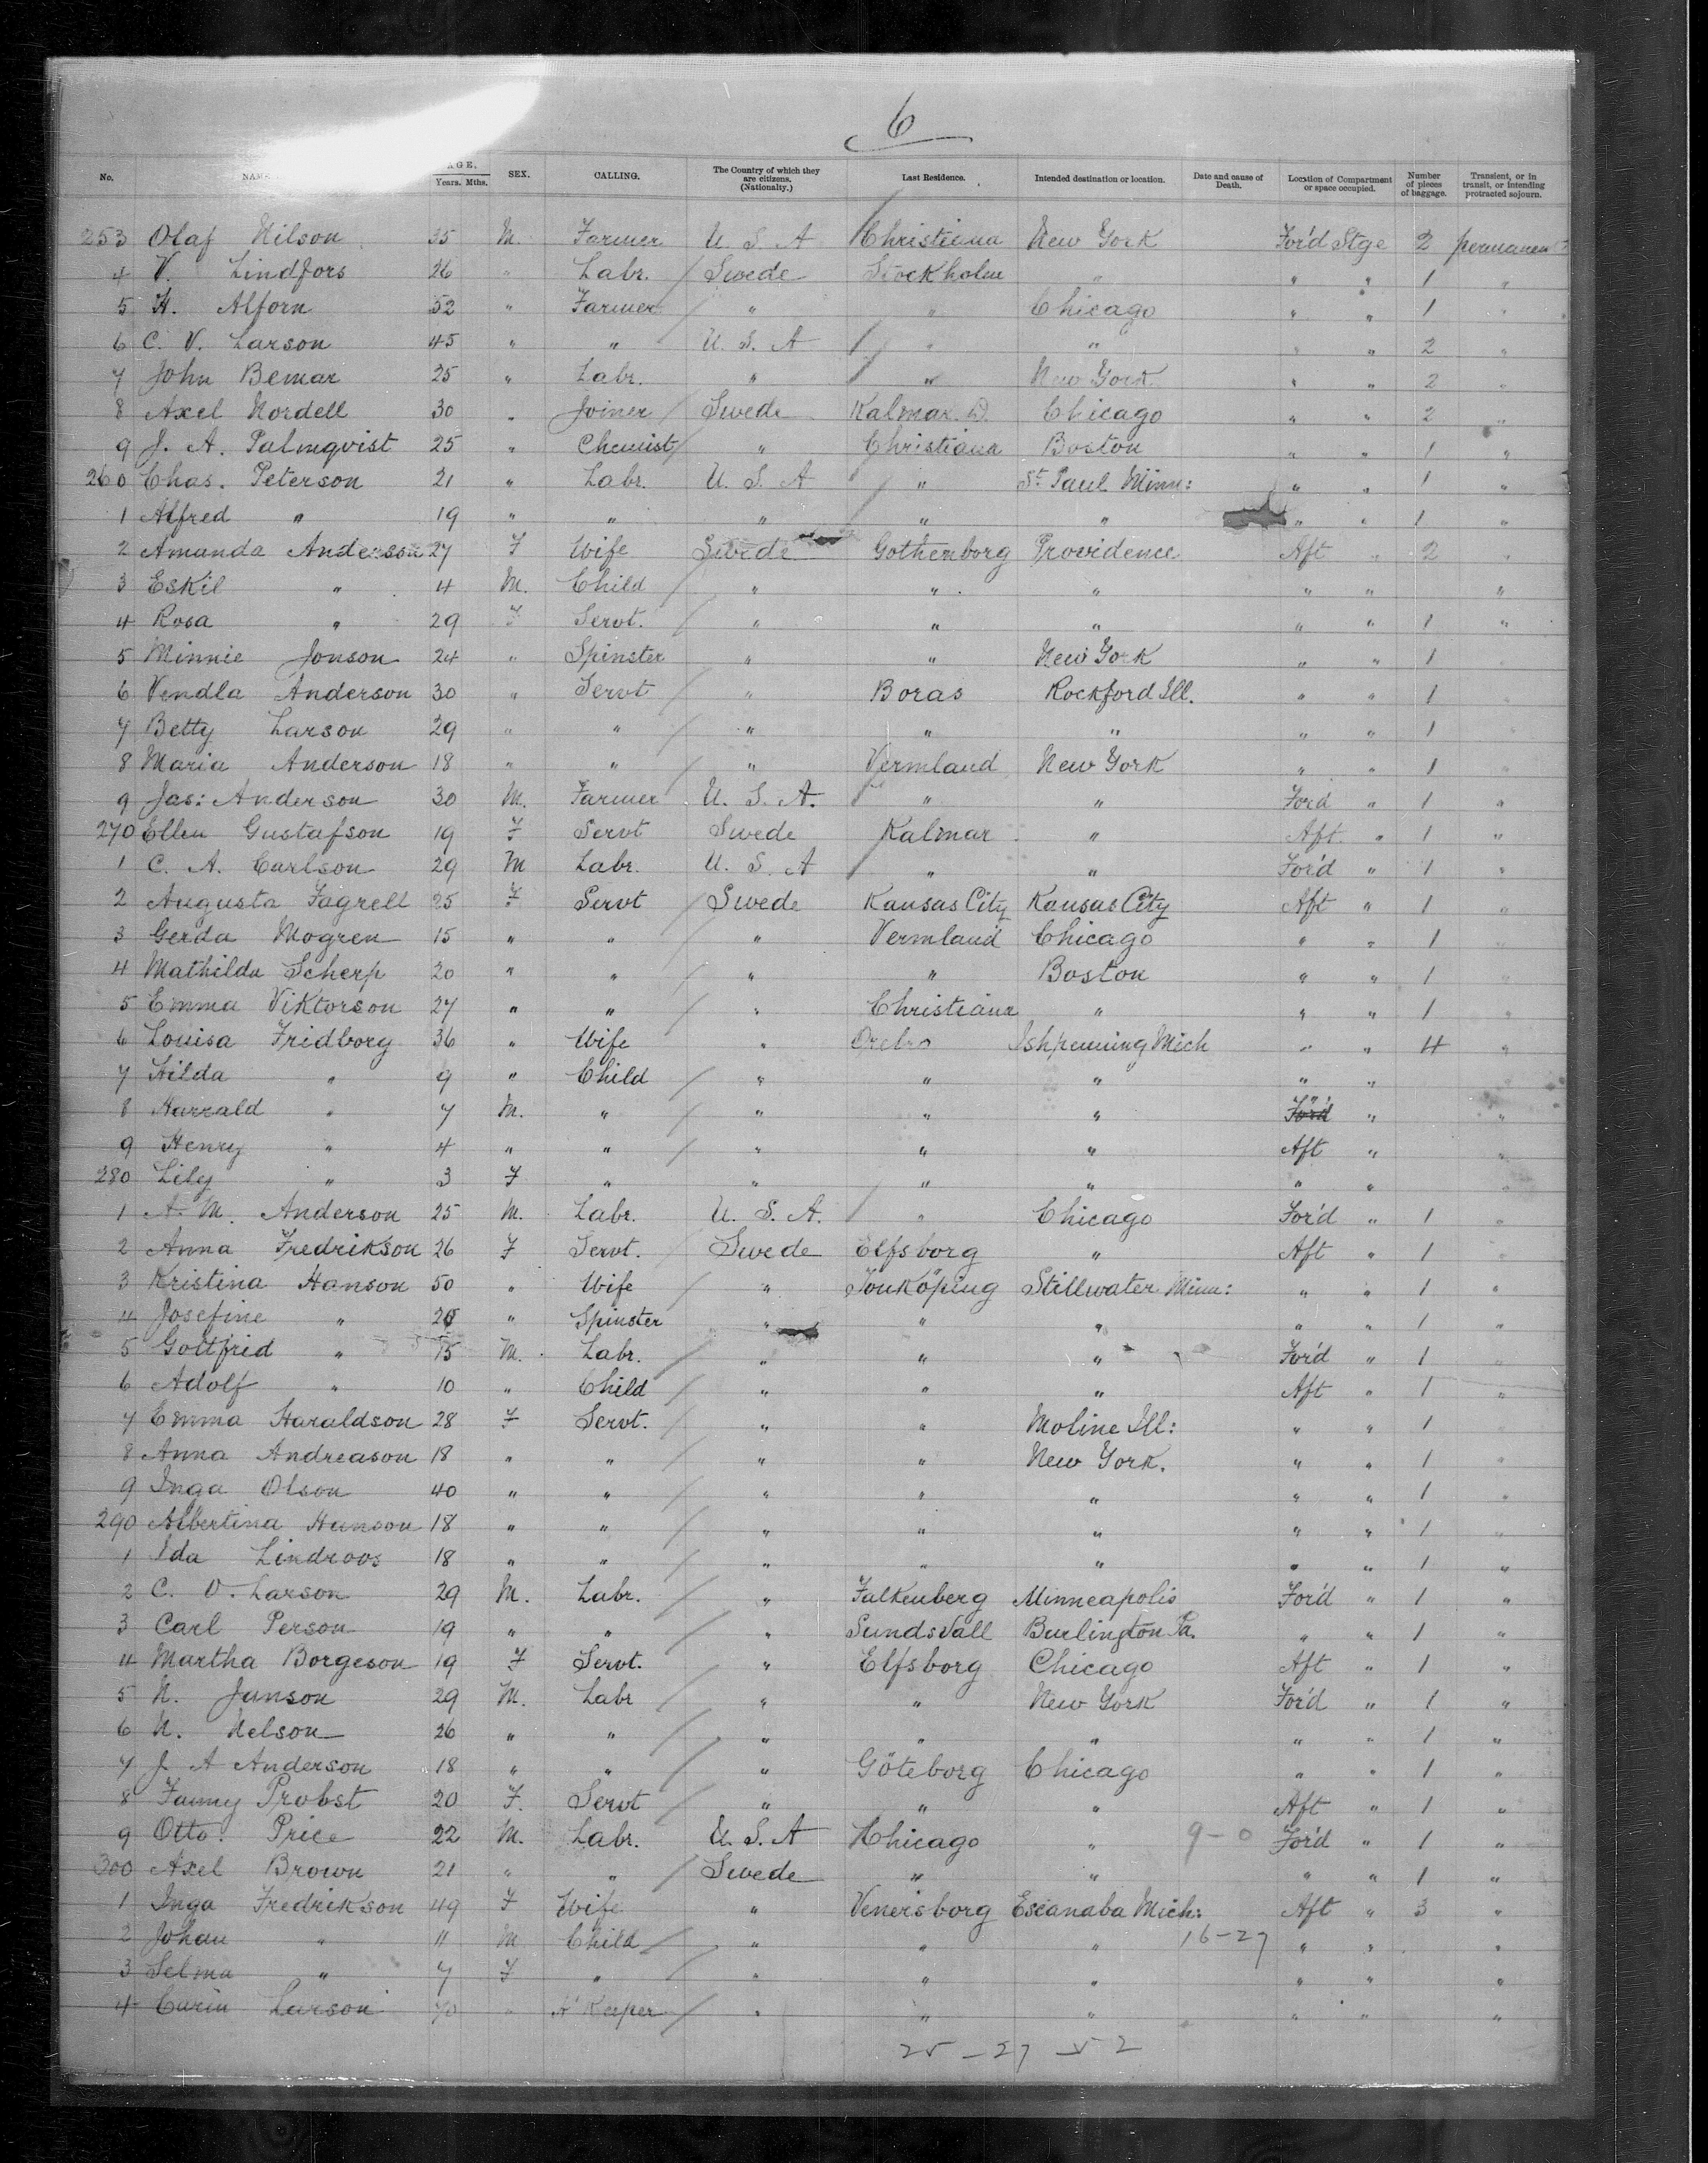 6
No. NAM AGE. Years. Mths. SEX. CALLING. The Country of which they are citizens. (Nationality.) Last Residence. Intended destination or location. Date and cause of Death. Location of Compartment or space occupied. Number of pieces of baggage. Transient, or in transit, or intending protracted sojourn.
253 Olaf Nilson 35 M. Farmer U. S. A Christiana New York For'd Stge 2 permanent
4 V. Lindfors 26 " Labr. / Swede Stockholm " " " 1 "
5 H. Alforn 52 " Farmer / " " Chicago " " 1 "
6 C. V. Larson 45 " " U. S. A / " " " " 2 "
7 John Bemar 25 " Labr. " / " New York " " 2 "
8 Axel Nordell 30 " Joiner / Swede Kalmar. D. Chicago " " 2 "
9 J. A. Palmqvist 25 " Chemist / " Christiana Boston " " 1 "
260 Chas. Peterson 21 " Labr. U. S. A / " St Paul Minn: " " 1 "
1 Alfred " 19 " " " / " " " " 1 "
2 Amanda Anderson 27 F Wife Swede Gothenborg Providence Aft " 2 "
3 Eskil " 4 M. Child / " " " " " "
4 Rosa " 29 F Servt. / " " " " " 1 "
5 Minnie Jonson 24 " Spinster " " New York " " 1 "
6 Vendla Anderson 30 " Servt / " Boras Rockford Ill. " " 1 "
7 Betty Larson 29 " " / " " " " " 1 "
8 Maria Anderson 18 " " / " Vermland New York " " 1 "
9 Jas: Anderson 30 M. Farmer U. S. A. / " " Ford " 1 "
270 Ellen Gustafson 19 F Servt Swede Kalmar " Aft. " 1 "
1 C. A. Carlson 29 M Labr. U. S. A / " " For'd " 1 "
2 Augusta Fagrell 25 F Servt / Swede Kansas City Kansas City Aft " 1 "
3 Gerda Mogren 15 " " / " Vermland Chicago " " 1 "
4 Mathilda Scherp 20 " " / " " Boston " " 1 "
5 Emma Viktorson 27 " " / " Christiana " " " 1 "
6 Louisa Fridborg 36 " Wife " Orebro Ishpenning Mich " " 4 "
7 Hilda " 9 " Child / " " " " "
8 Harrald " 7 M. " / " " " Ford " "
9 Henry " 4 " " / " " " Aft " "
280 Lily " 3 F " " " " " " "
1 A. M. Anderson 25 M. Labr. U. S. A. / " Chicago For'd " 1 "
2 Anna Fredrikson 26 F Servt. / Swede Elfsborg " Aft " 1 "
3 Kristina Hanson 50 " Wife / " Jonköping Stillwater Minn: " " 1 "
4 Josefine " " Spinster " " " " " 1 "
5 Gottfrid " 15 M. Labr. / " " " For'd " 1 "
6 Adolf " 10 " Child / " " " Aft " 1 "
7 Emma Haraldson 28 F Servt. / " " Moline Ill: " " 1 "
8 Anna Andreason 18 " " / " " New York. " " 1 "
9 Inga Olson 40 " " / " " " " " 1 "
290 Albertina Hanson 18 " " / " " " " " 1 "
1 Ida Lindroos 18 " " / " " " " " 1 "
2 C. O. Larson 29 M. Labr. / " Falkenberg Minneapolis For'd " 1 "
3 Carl Person 19 " " / " Sundsvall Burlington " " 1 "
4 Martha Borgeson 19 F Servt. / " Elfsborg Chicago Aft " 1 "
5 N. Janson 29 M. Labr / " " New York For'd " 1 "
6 N. Nelson 26 " " / " " " " " 1 "
7 J. A Anderson 18 " " / " Göteborg Chicago " " 1 "
8 Fanny Probst 20 F. Servt / " " " Aft " 1 "
9 Otto. Price 22 M. Labr. U. S. A Chicago " 9 - 0 For'd " 1 "
300 Axel Brown 21 " " / Swede " " " " 1 "
1 Inga Fredrikson 49 F Wife " Venersborg Escanaba Mich: Aft " 3 "
2 Johan " 11 M Child / " " " 16-27 " " "
3 Selma " 7 F " / " " " " " "
4 Carin Larson 70 " H' Keeper / " " " " " "
25 - 27 - 52